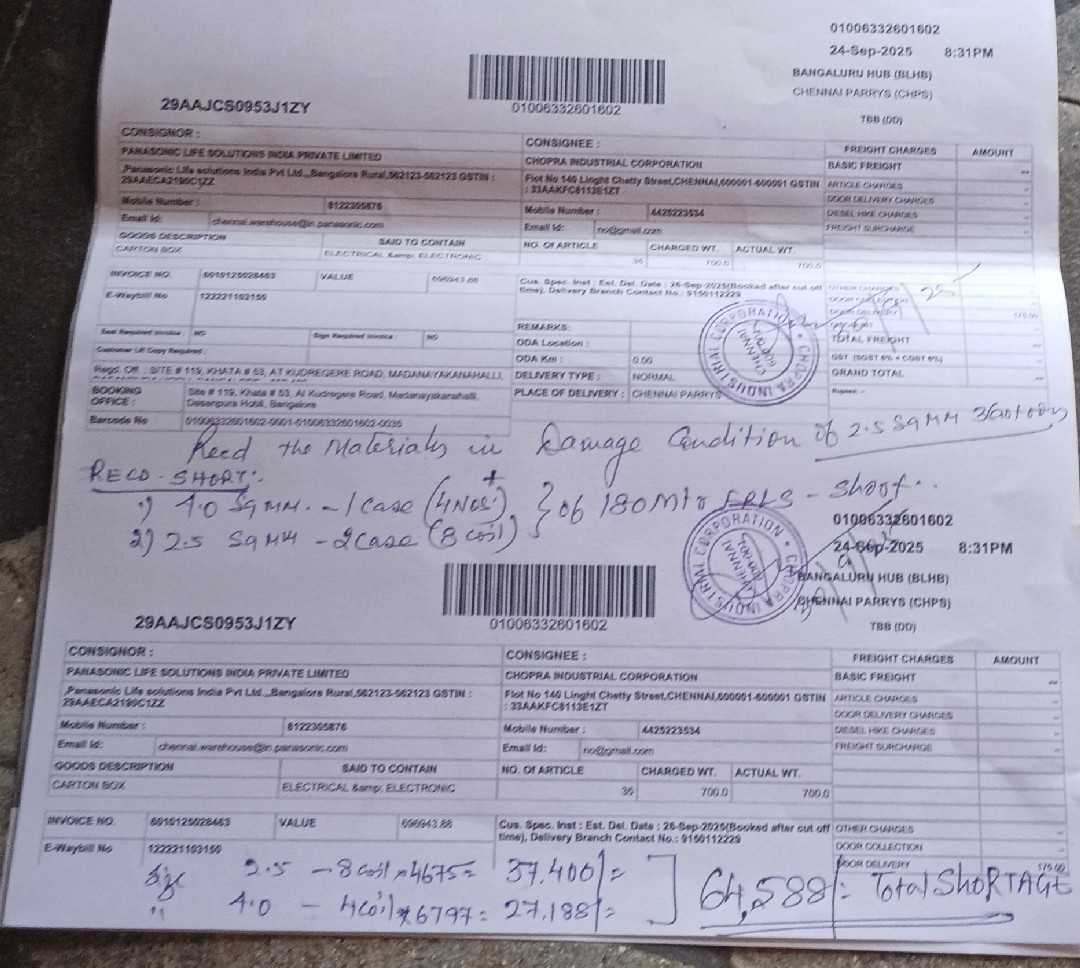 01006332601602
24-Sep-2025 8:31PM
BANGALURU HUB (BLHB)
CHENNAI PARRYS (CHPS)
TBB (DD)
29AAJCS0953J1ZY
01006332601602
CONSIGNOR :
PANASONIC LIFE SOLUTIONS INDIA PRIVATE LIMITED
Panasonic Life solutions India Pvt Ltd.,,Bangalore Rural,562123-562123 GSTIN :
29AAECA2190C1ZZ
Mobile Number : 8122305876
Email Id: chennai.warehouse@in.panasonic.com
CONSIGNEE :
CHOPRA INDUSTRIAL CORPORATION
Flot No 140 Linghi Chetty Street,CHENNAI,600001-600001 GSTIN
: 33AAKFC8113E1ZT
Mobile Number : 4425223534
Email Id: no@gmail.com
FREIGHT CHARGES AMOUNT
BASIC FREIGHT --
ARTICLE CHARGES
DOOR DELIVERY CHARGES
DIESEL HIKE CHARGES
FREIGHT SURCHARGE
GOODS DESCRIPTION SAID TO CONTAIN NO. OF ARTICLE CHARGED WT. ACTUAL WT.
CARTON BOX ELECTRICAL &amp; ELECTRONIC 36 700.0 700.0
INVOICE NO. 6915125028463 VALUE 696943.88
E-Waybill No 122221103159
Cus. Spec. Inst : Est. Del. Date : 26-Sep-2025(Booked after cut off
time), Delivery Branch Contact No.: 9150112229
OTHER CHARGES
DOOR COLLECTION
DOOR DELIVERY 175.00
TOTAL FREIGHT
GST (SGST 6% + CGST 6%)
GRAND TOTAL --
Seal Required Invoice : NO Sign Required Invoice : NO
Customer LR Copy Required :
REMARKS:
ODA Location :
ODA Km : 0.00
DELIVERY TYPE : NORMAL
PLACE OF DELIVERY : CHENNAI PARRYS
Regd. Off. : SITE # 119, KHATA # 53, AT KUDREGERE ROAD, MADANAYAKANAHALLI,
BOOKING OFFICE : Site # 119, Khata # 53, At Kudregere Road, Madanayakanahalli,
Dasanpura Hobli, Bangalore
Barcode No 01006332601602-0001-01006332601602-0035
CORPORATION * CHOPRA INDUSTRIAL
CHENNAI
Recd the Materials in Damage Condition of 2.5 SQ MM
RECD. SHORT:
1) 4.0 Sq MM. - 1 Case (4 Nos)
2) 2.5 SQ MM - 2 Case (8 coil) } of 180 Mtr FRLS - Short..
CORPORATION * CHOPRA INDUSTRIAL
CHENNAI
01006332601602
24-Sep-2025 8:31PM
BANGALURU HUB (BLHB)
CHENNAI PARRYS (CHPS)
TBB (DD)
29AAJCS0953J1ZY
01006332601602
CONSIGNOR :
PANASONIC LIFE SOLUTIONS INDIA PRIVATE LIMITED
Panasonic Life solutions India Pvt Ltd.,,Bangalore Rural,562123-562123 GSTIN :
29AAECA2190C1ZZ
Mobile Number : 8122305876
Email Id: chennai.warehouse@in.panasonic.com
CONSIGNEE :
CHOPRA INDUSTRIAL CORPORATION
Flot No 140 Linghi Chetty Street,CHENNAI,600001-600001 GSTIN
: 33AAKFC8113E1ZT
Mobile Number : 4425223534
Email Id: no@gmail.com
FREIGHT CHARGES AMOUNT
BASIC FREIGHT --
ARTICLE CHARGES
DOOR DELIVERY CHARGES
DIESEL HIKE CHARGES
FREIGHT SURCHARGE
GOODS DESCRIPTION SAID TO CONTAIN NO. Of ARTICLE CHARGED WT. ACTUAL WT.
CARTON BOX ELECTRICAL &amp; ELECTRONIC 36 700.0 700.0
INVOICE NO. 6915125028463 VALUE 696943.88
E-Waybill No 122221103159
Cus. Spec. Inst : Est. Del. Date : 26-Sep-2025(Booked after cut off
time), Delivery Branch Contact No.: 9150112229
OTHER CHARGES
DOOR COLLECTION
DOOR DELIVERY 175.00
size 2.5 - 8 coil x 4675 = 37,400/=
" 4.0 - 4 coil x 6797 = 27,188/=
64,588/= Total SHORTAGE